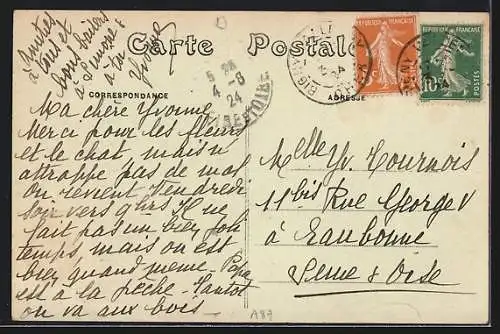 Amitiés
à tous et
bons baisers
à Simone &
à toi
Yvonne
Carte Postale
CORRESPONDANCE
ADRESSE
REPUBLIQUE FRANÇAISE
REPUBLIQUE FRANÇAISE
10c
POSTES
4-8
24
Ma chère Yvonne
Merci pour les fleurs
et le chat mais n'
attrappe pas de mal
on revient Vendredi
soir vers 9 hrs Il ne
fait pas un bien joli
temps, mais on est
bien quand même. Papa
est à la pêche. Tantot
on va aux bois.
Melle Yv. Tournois
11bis Rue George V
à Eaubonne
Seine & Oise
A87